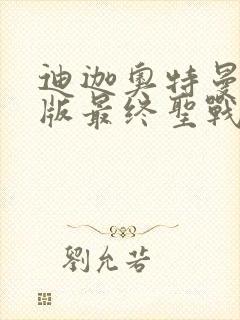 迪迦奥特曼
版最终聖戰
劉允若